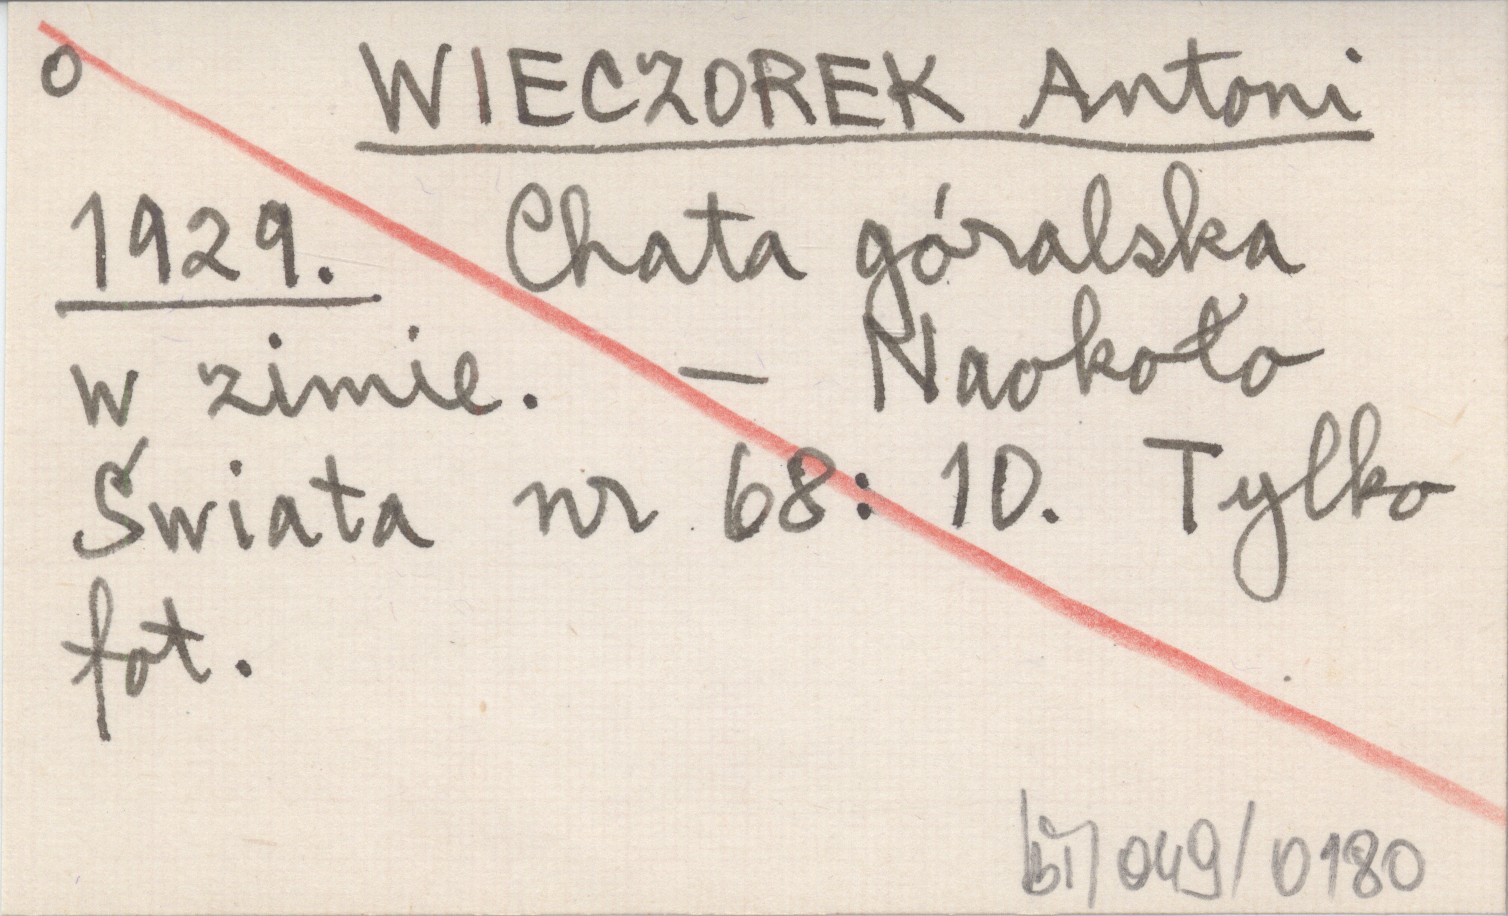 o WIECZOREK Antoni
1929. Chata góralska
w zimie. — Naokoło
Świata nr 68: 10. Tylko
fot.
bi/049/0180